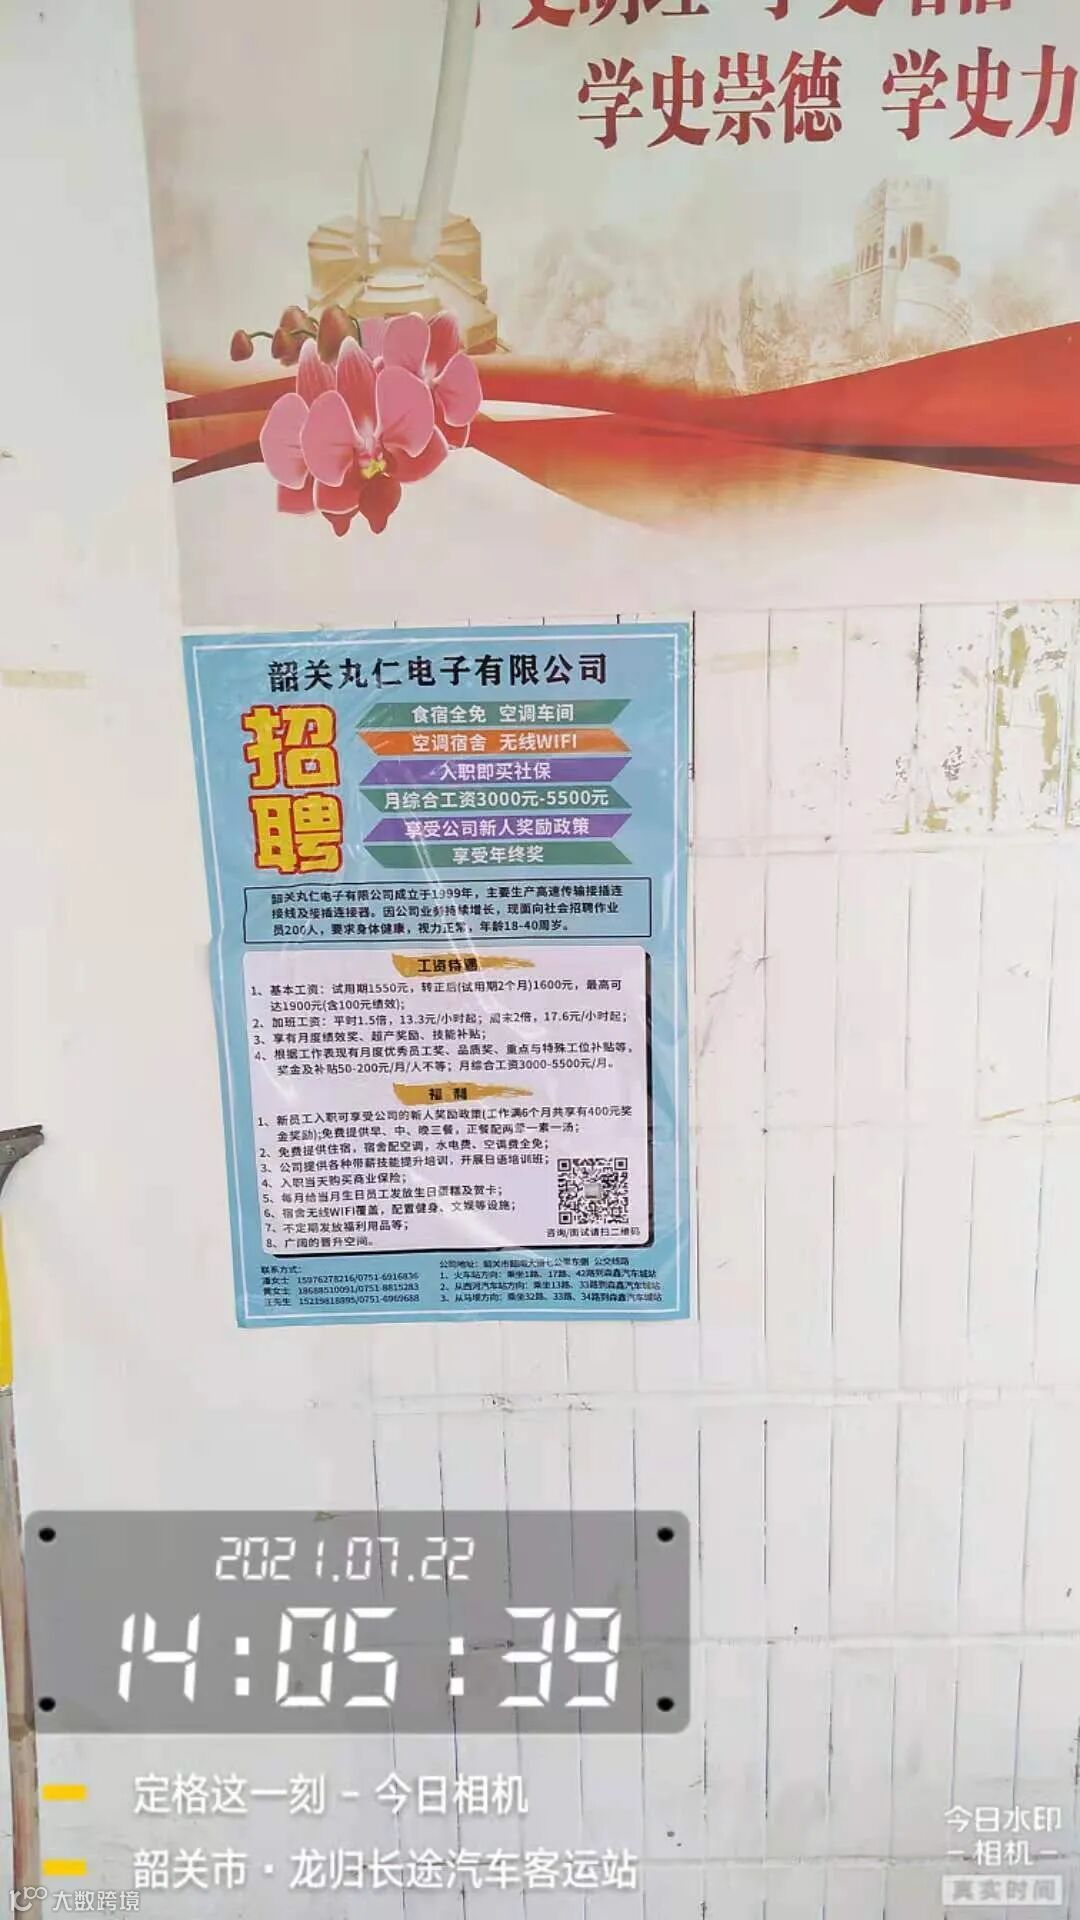 学史崇德 学史力
韶关丸仁电子有限公司
招聘
食宿全免 空调车间
空调宿舍 无线WIFI
入职即买社保
月综合工资3000元-5500元
享受公司新人奖励政策
享受年终奖
韶关丸仁电子有限公司成立于1999年，主要生产高速传输接插连
接线及接插连接器。因公司业务持续增长，现面向社会招聘作业
员200人，要求身体健康，视力正常，年龄18-40周岁。
工资待遇
1、基本工资：试用期1550元，转正后(试用期2个月)1600元，最高可
达1900元(含100元绩效);
2、加班工资：平时1.5倍，13.3元/小时起；周末2倍，17.6元/小时起；
3、享有月度绩效奖、超产奖励、技能补贴；
4、根据工作表现有月度优秀员工奖、品质奖、重点与特殊工位补贴等，
奖金及补贴50-200元/月/人不等；月综合工资3000-5500元/月。
福利
1、新员工入职可享受公司的新人奖励政策(工作满6个月共享有400元奖
金奖励);免费提供早、中、晚三餐，正餐配两荤一素一汤；
2、免费提供住宿，宿舍配空调，水电费、空调费全免；
3、公司提供各种带薪技能提升培训，开展日语培训班；
4、入职当天购买商业保险；
5、每月给当月生日员工发放生日蛋糕及贺卡；
6、宿舍无线WIFI覆盖，配置健身、文娱等设施；
7、不定期发放福利用品等；
8、广阔的晋升空间。
咨询/面试请扫二维码
联系方式：
潘女士 15976278216/0751-6916836
黄女士 18688510091/0751-8815283
汪先生 15219818895/0751-6969688
公司地址：韶关市韶南大道七公里东侧 公交线路
1、火车站方向：乘坐1路、17路、42路到森鑫汽车城站
2、从西河汽车站方向：乘坐13路、33路到森鑫汽车城站
3、从马坝方向：乘坐32路、33路、34路到森鑫汽车城站
2021.07.22
14:05:39
定格这一刻 - 今日相机
韶关市·龙归长途汽车客运站
今日水印
-相机-
真实时间
大数跨境